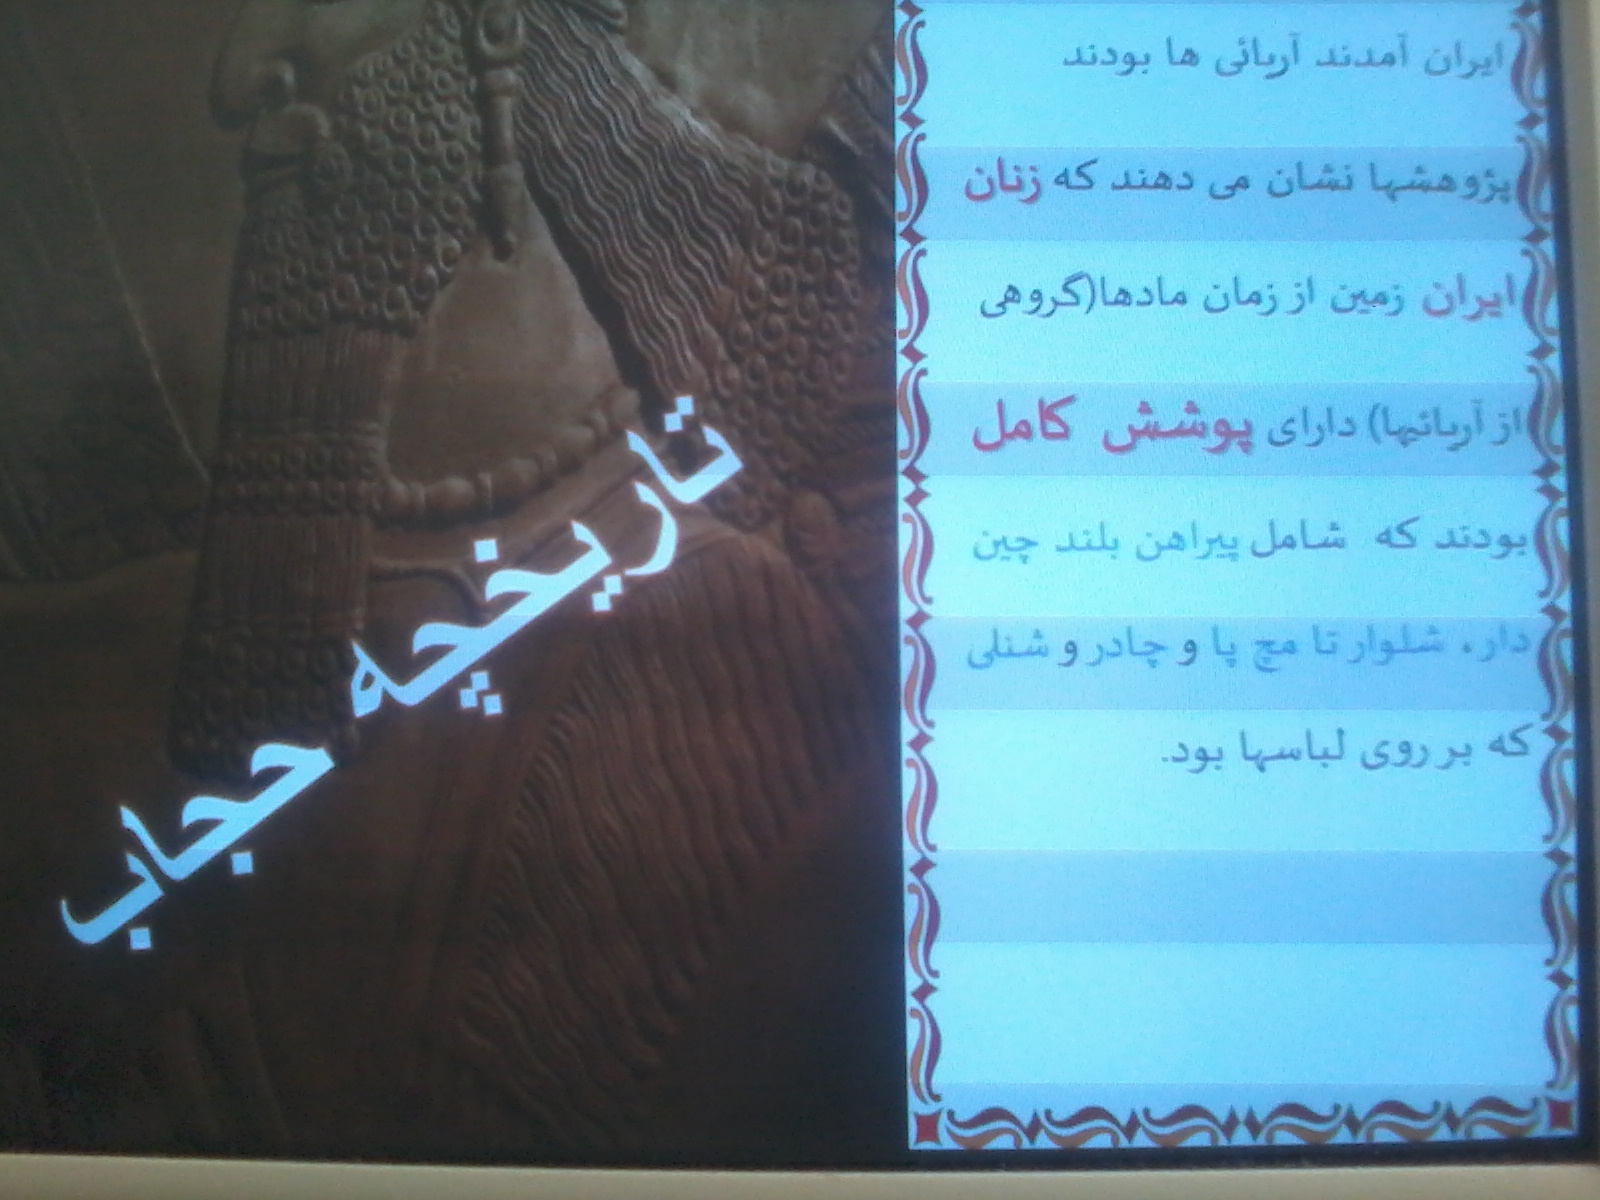 ایران آمدند آریائی ها بودند
پژوهشها نشان می دهند که زنان
ایران زمین از زمان مادها(گروهی
از آریائیها) دارای پوشش کامل
بودند که شامل پیراهن بلند چین
دار، شلوار تا مچ پا و چادر و شنلی
که بر روی لباسها بود.
تاریخچه حجاب